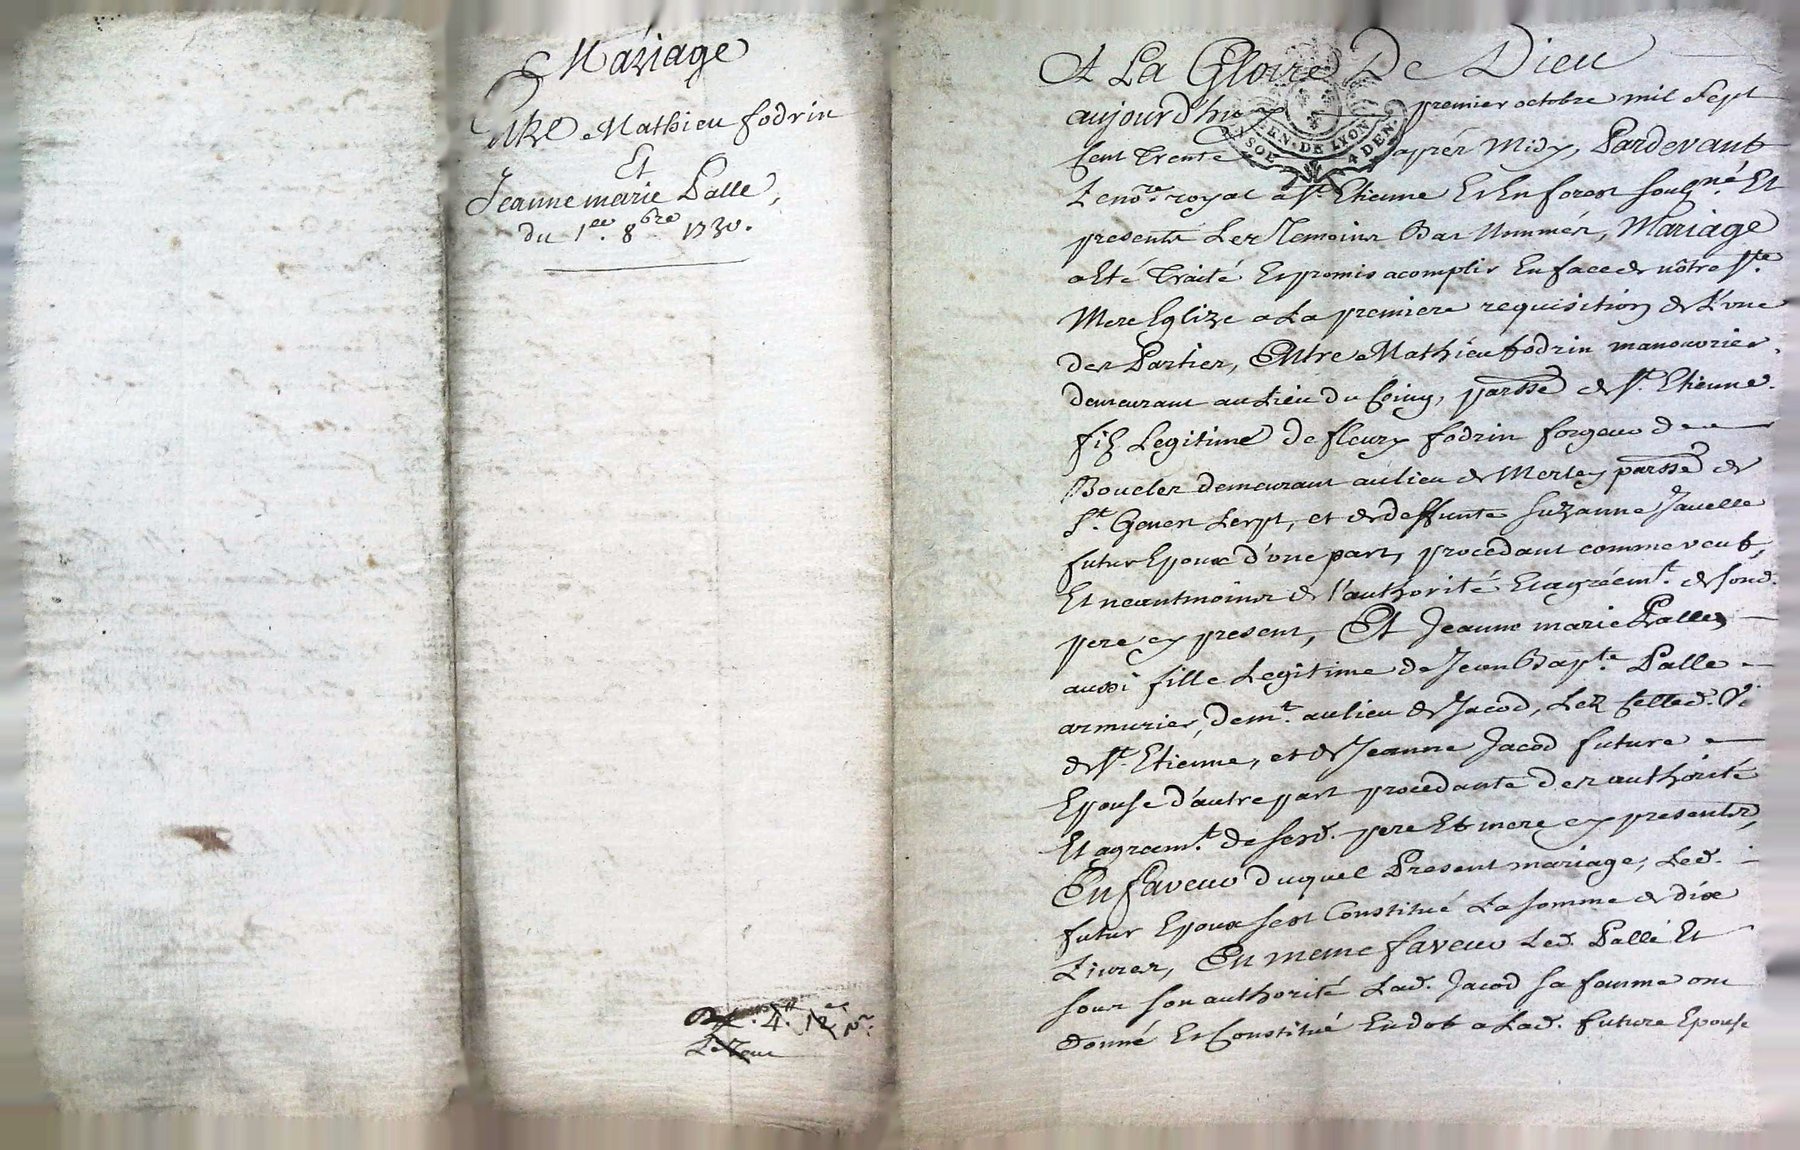 Mariage
Entre Mathieu fodrin
Et
Jeanne marie Palle,
du 1.er 8bre 1730.
4.tt 12
A La Gloire De Dieu
aujourd'hui premier octobre mil sept
Cent Trente apres Midy, Pardevant
Le nore. royal a St. Etienne En forest soussigné Et
presents Les Temoins Bas Nommés, Mariage
a Eté Traité Et promis acomplir En face de nôtre Ste.
Mere Eglize a La premiere requisition de L'une
des Parties, Entre Mathieu fodrin manouvrier
demeurant au Lieu du Coing, parsse de St. Etienne
fils Legitime de fleury fodrin forgeur de
Boucles demeurant au lieu de Merley parsse de
St. Genest Lerpt, et de deffunte Suzanne Javelle
futur Epoux d'une part, procedant comme veuf,
Et neantmoins de l'authorité Et agréemt. de sond.
pere cy present, Et Jeanne marie Palle
aussi fille Legitime de Jean Bapte. Palle
armurier, demt. au lieu de Jacod, Lez
de St. Etienne, et de Jeanne Jacod future
Epouse d'autre part procedante des authorité
Et agreamt. de sesd. pere Et mere cy presents,
En faveur duquel Present mariage, Led.
futur Epoux sest Constitué La somme de dix
Livres, En meme faveur Led. Palle Et
sous son authorité Lad. Jacod sa femme ont
donné Et Constitué En dot a Lad. future Epouse
SOL EN. DE LYON 4 DEN.